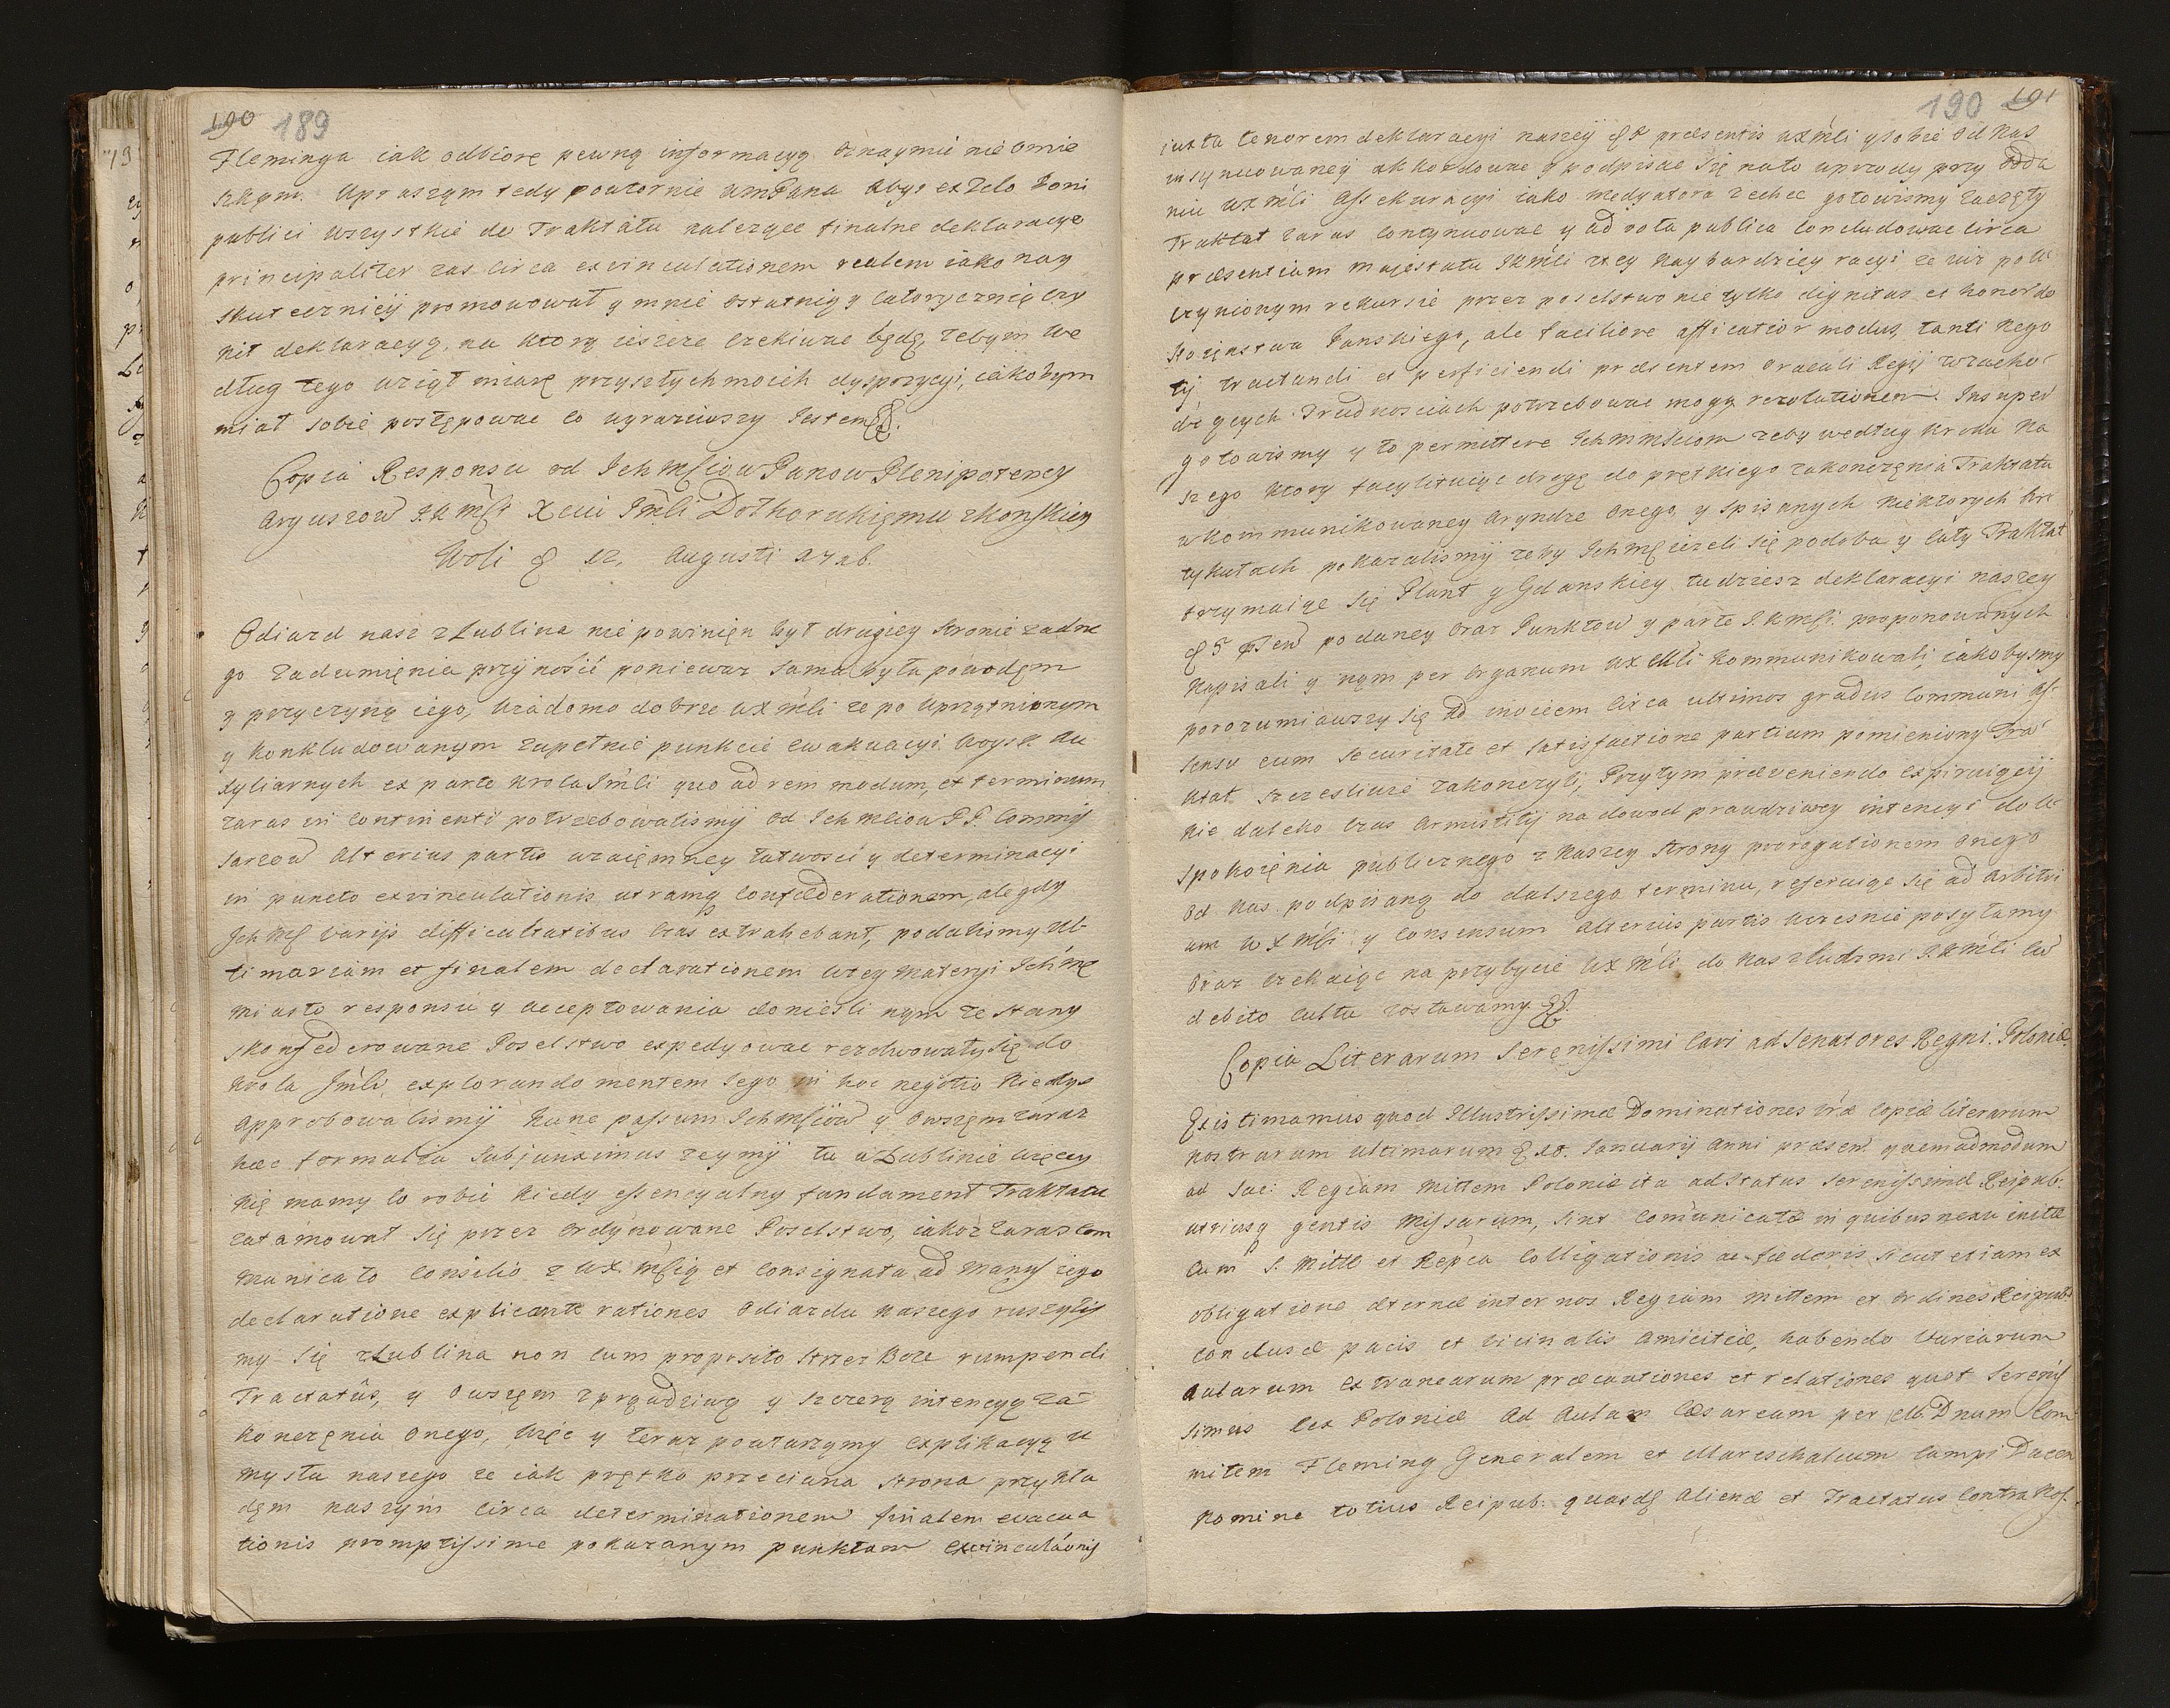 190 189
Fleminga iak odbiorę pewną informacyą oznaymić nie omie
szkam. Upraszam tedy powtornie WmPana abyś ex zelo boni
publici wszystkie do Traktatu należące finalne deklaracye
principaliter zas circa exvinculationem realem iako nay
skuteczniey promowował y mnie ostatnią y catorycznię uczy
nił deklaracyą, na ktorą ieszcze czekiwac będę, żebym we
dług tego wziął miarę przyszłych moich dyspozycyi, iakobym
miał sobie postępowac co wyraziwszy Iestem
Copia Responsu od Ichmsciow Panow Plenipotency
aryuszow I.K.Msci Xciu Imsci Dolhorukięmu z Konskiey
Woli 12. Augusti
Odiazd nasz z Lublina nie powinięn był drugiey stronie żadne
go zadumięnia przynosić poniewaz sama była powodęm
y przyczyną iego, wiadomo dobrze WX Msci ze po uprzątnionym
y konkludowanym zupełnie punkcie ewakuacyi woysk au
xyliarnych ex parte Krola Imsci quo ad rem modum, et terminum
zaras in continenti potrzebowalismy od Ichmsciow PP. Commis
sarzow alterius partis wzaięmney łatwosci y determinacyi
in puncto exvinculationis utramq confœderationem, ale gdy
Ichmsc varijs difficultatibus czas extrahebant, podalismy ul
timariam et finalem declarationem w tey materyi Ichmsc
miasto responsu y acceptowania doniesli nąm że stany
skonfederowane Poselstwo expedyowac rezolwowały się do
Krola Imsci, explorando mentem Iego in hoc negotio kiedys
approbowalismy hunc passum Ichmsciow y owszęm zaraz
hæc formalia subjunximus zeymy tu w Lublinie więcey
nię mamy co robic kiedy essencyalny fundament Traktatu
zatamował się przez ordynowane Poselstwo, iakoż zaraz com
municato consilio z WX Mscią et consignata ad manus iego
declaratione explicante rationes odiazdu naszego ruszylis
my się z Lublina non cum proposito strzeż Boze rumpendi
Tractatûs, y owszęm z prawdziwą y szczerą intencyą za
konczęnia onego, więc y teraz powtarzamy explikacyą u
mysłu naszego ze iak prętko przeciwna strona przykła
dęm naszym circa determinationem finalem evacua
tionis promptissime pokazanym punktam exvinculationis
190 191
iuxta tenorem deklaracyi naszey præsentis WXMsci y sobie od nas
insynuowaney akkordowac y podpisac się na to wprzody przy odda
niu WXMsci assekuracyi iako medyatora zechce gotowismy zaczęty
Traktat zaras contynuowac y ad vota publica concludowac circa
præsentiam majestatu IKMsci z tey naybardziey racyi ze iuż po u
czynionym rekursie przez poselstwo nie tylko dignitas et honor do
stoięnstwa Panskiego, ale faciliore efficatior modus, tanti nego
tij tractandi et perficiendi præsentem oraculi Regij w zacho
dzących trudnosciach potrzebowac mogą rezolutionem. Insuper
gotowismy y to permittere Ichmmsciom żeby według Krola na
szego ktory facylituiąc drogę do prętkiego zakonczęnia Traktatu
w kommunikowaney Aryndze onego, y spisanych niektorych Ar
tykułach pokazalismy zeby Ichmsc iezeli się podoba y cały Traktat
trzymaiąc się Plant y Gdanskiey tudziesz deklaracyi naszey
5 podaney oraz Punktow y parte I.KMsci proponowanych
napisali y nąm per organum WX Msci kommunikowali, iakobysmy
porozumiawszy się ad invicem circa ultimos gradus communi as
sensu cum securitate et satisfactione partium pomieniony Tra
ktat szczesliwie zakonczyli, Przytym præveniendo expiruiącey
nie daleko czas Armistitij na dowod prawdziwey intencyi do u
spokoięnia publicznego z naszey strony prorogationem onego
od nas podpisaną do dalszego terminu, referuiąc się ad arbitri
um WX Msci y consensum alterius partis wczesnie posyłamy
oraz czekaiąc na przybycie WX Msci do nas z ludzmi I.KMsci cu
debito cultu zostawamy
Copia Literarum Serenissimi Cari ad Senatores Regni Poloniæ.
Existimamus quod Illustrissimæ Dominationes vræ copiæ literarum
nostrarum ultimarum 28. Ianuarij anni præsen quemadmodum
ad Sac: Regiam Mittem Poloniæ ita ad Status Serenissimæ Reipub:
utriusq gentis missarum, sint comunicatæ in quibus nexu initæ
cum S. Mitte et Repca Colligationis ac fœderis sicut etiam ex
obligatione æternæ inter nos Regiam Mittem et ordines Reipub:
conclusæ pacis et vicinalis amicitiæ, habendo variarum
aularum extranearum præcautiones et relationes quot Serenis
simus Rex Poloniæ ad Aulam Cæsaream per Dnum Com
mitem Fleming Generalem et Mareschalcum Campi Ducem
nomine totius Reipub: quasdą alienæ et Tractatus contra Nos.